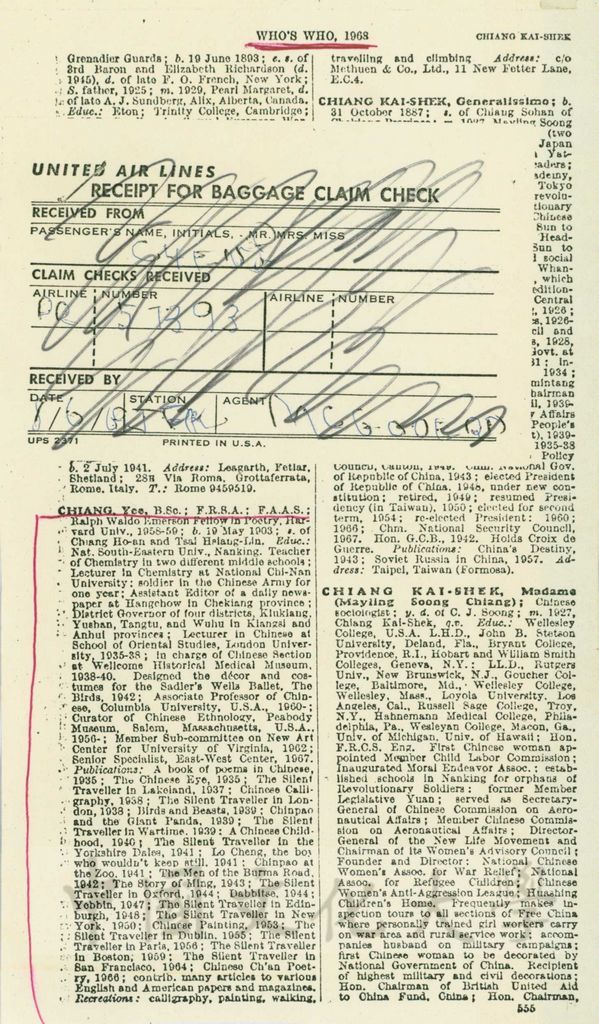 WHO'S WHO, 1968
CHIANG KAI-SHEK
Grenadier Guards; b. 19 June 1893; e. s. of
3rd Baron and Elizabeth Richardson (d.
1945), d. of late F. O. French, New York;
S. father, 1925; m. 1929, Pearl Margaret, d.
of late A. J. Sundberg, Alix, Alberta, Canada.
Educ.: Eton; Trinity College, Cambridge;
travelling and climbing Address: c/o
Methuen & Co., Ltd., 11 New Fetter Lane,
E.C.4.
CHIANG KAI-SHEK, Generalissimo; b.
31 October 1887; s. of Chiang Sohan of
Soong
(two
Japan
Yat-
aders;
ademy,
Tokyo
revolu-
tionary
Chinese
Sun to
Head-
Sun to
l social
Whan-
, which
edition-
Central
, 1926;
s, 1926-
cil and
s, 1928,
Govt. at
31; In-
1934;
mintang
hairman
il, 1939-
r Affairs
People's
t), 1939-
1935-38
Policy
UNITED AIR LINES
RECEIPT FOR BAGGAGE CLAIM CHECK
RECEIVED FROM
PASSENGER'S NAME, INITIALS, - MR. MRS. MISS
CLAIM CHECKS RECEIVED
AIRLINE NUMBER AIRLINE NUMBER
RECEIVED BY
DATE STATION AGENT
UPS 2371 PRINTED IN U.S.A.
b. 2 July 1941. Address: Leagarth, Fetlar,
Shetland; 28H Via Roma, Grottaferrata,
Rome, Italy. T.: Rome 9459519.
CHIANG, Yee, B.Sc.; F.R.S.A.; F.A.A.S.;
Ralph Waldo Emerson Fellow in Poetry, Har-
vard Univ., 1958-59; b. 19 May 1903; s. of
Chiang Ho-an and Tsai Hsiang-Lin. Educ.:
Nat. South-Eastern Univ., Nanking. Teacher
of Chemistry in two different middle schools;
Lecturer in Chemistry at National Chi-Nan
University; soldier in the Chinese Army for
one year; Assistant Editor of a daily news-
paper at Hangchow in Chekiang province;
District Governor of four districts, Kiukiang,
Yushan, Tangtu, and Wuhu in Kiangsi and
Anhui provinces; Lecturer in Chinese at
School of Oriental Studies, London Univer-
sity, 1935-38; in charge of Chinese Section
at Wellcome Historical Medical Museum,
1938-40. Designed the décor and cos-
tumes for the Sadler's Wells Ballet, The
Birds, 1942; Associate Professor of Chin-
ese, Columbia University, U.S.A., 1960-;
Curator of Chinese Ethnology, Peabody
Museum, Salem, Massachusetts, U.S.A.,
1956-; Member Sub-committee on New Art
Center for University of Virginia, 1962;
Senior Specialist, East-West Center, 1967.
Publications: A book of poems in Chinese,
1935; The Chinese Eye, 1935; The Silent
Traveller in Lakeland, 1937; Chinese Calli-
graphy, 1938; The Silent Traveller in Lon-
don, 1938; Birds and Beasts, 1939; Chinpao
and the Giant Panda, 1939; The Silent
Traveller in Wartime, 1939; A Chinese Child-
hood, 1940; The Silent Traveller in the
Yorkshire Dales, 1941; Lo Cheng, the boy
who wouldn't keep still, 1941; Chinpao at
the Zoo, 1941; The Men of the Burma Road,
1942; The Story of Ming, 1943; The Silent
Traveller in Oxford, 1944; Dabbitse, 1944;
Yebbin, 1947; The Silent Traveller in Edin-
burgh, 1948; The Silent Traveller in New
York, 1950; Chinese Painting, 1953; The
Silent Traveller in Dublin, 1953; The Silent
Traveller in Paris, 1956; The Silent Traveller
in Boston, 1959; The Silent Traveller in
San Francisco, 1964; Chinese Ch'an Poet-
ry, 1966; contrib. many articles to various
English and American papers and magazines.
Recreations: calligraphy, painting, walking,
Gov.
of Republic of China, 1943; elected President
of Republic of China, 1948, under new con-
stitution; retired, 1949; resumed Presi-
dency (in Taiwan), 1950; elected for second
term, 1954; re-elected President: 1960;
1966; Chm. National Security Council,
1967. Hon. G.C.B., 1942. Holds Croix de
Guerre. Publications: China's Destiny,
1943; Soviet Russia in China, 1957. Ad-
dress: Taipei, Taiwan (Formosa).
CHIANG KAI-SHEK, Madame
(Mayling Soong Chiang); Chinese
sociologist; y. d. of C. J. Soong; m. 1927,
Chiang Kai-Shek, q.v. Educ.: Wellesley
College, U.S.A. L.H.D., John B. Stetson
University, Deland, Fla., Bryant College,
Providence, R.I., Hobart and William Smith
Colleges, Geneva, N.Y.; LL.D., Rutgers
Univ., New Brunswick, N.J., Goucher Col-
lege, Baltimore, Md., Wellesley College,
Wellesley, Mass., Loyola University, Los
Angeles, Cal., Russell Sage College, Troy,
N.Y., Hahnemann Medical College, Phila-
delphia, Pa., Wesleyan College, Macon, Ga.,
Univ. of Michigan, Univ. of Hawaii; Hon.
F.R.C.S. Eng. First Chinese woman ap-
pointed Member Child Labor Commission;
Inaugurated Moral Endeavor Assoc.; estab-
lished schools in Nanking for orphans of
Revolutionary Soldiers; former Member
Legislative Yuan; served as Secretary-
General of Chinese Commission on Aero-
nautical Affairs; Member Chinese Commis-
sion on Aeronautical Affairs; Director-
General of the New Life Movement and
Chairman of its Women's Advisory Council;
Founder and Director: National Chinese
Women's Assoc. for War Relief; National
Assoc. for Refugee Children; Chinese
Women's Anti-Aggression League; Huahsing
Children's Home. Frequently makes in-
spection tours to all sections of Free China
where personally trained girl workers carry
on war area and rural service work; accom-
panies husband on military campaigns;
first Chinese woman to be decorated by
National Government of China. Recipient
of highest military and civil decorations;
Hon. Chairman of British United Aid
to China Fund, China; Hon. Chairman,
555